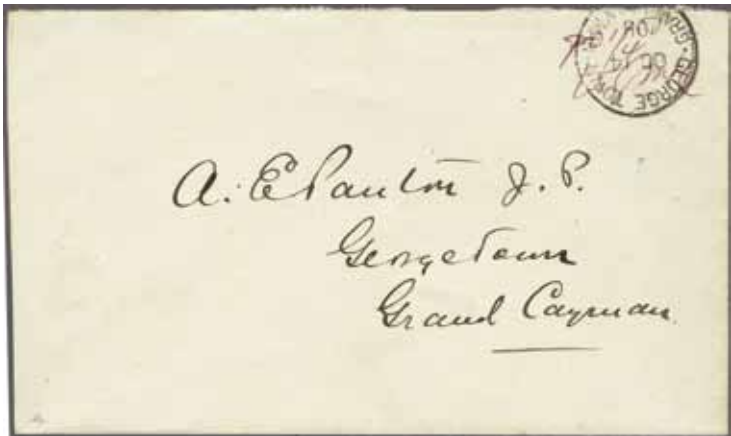 GEORGE TOWN
14
08
A. E Panton J. P.
Georgetown
Grand Cayman.